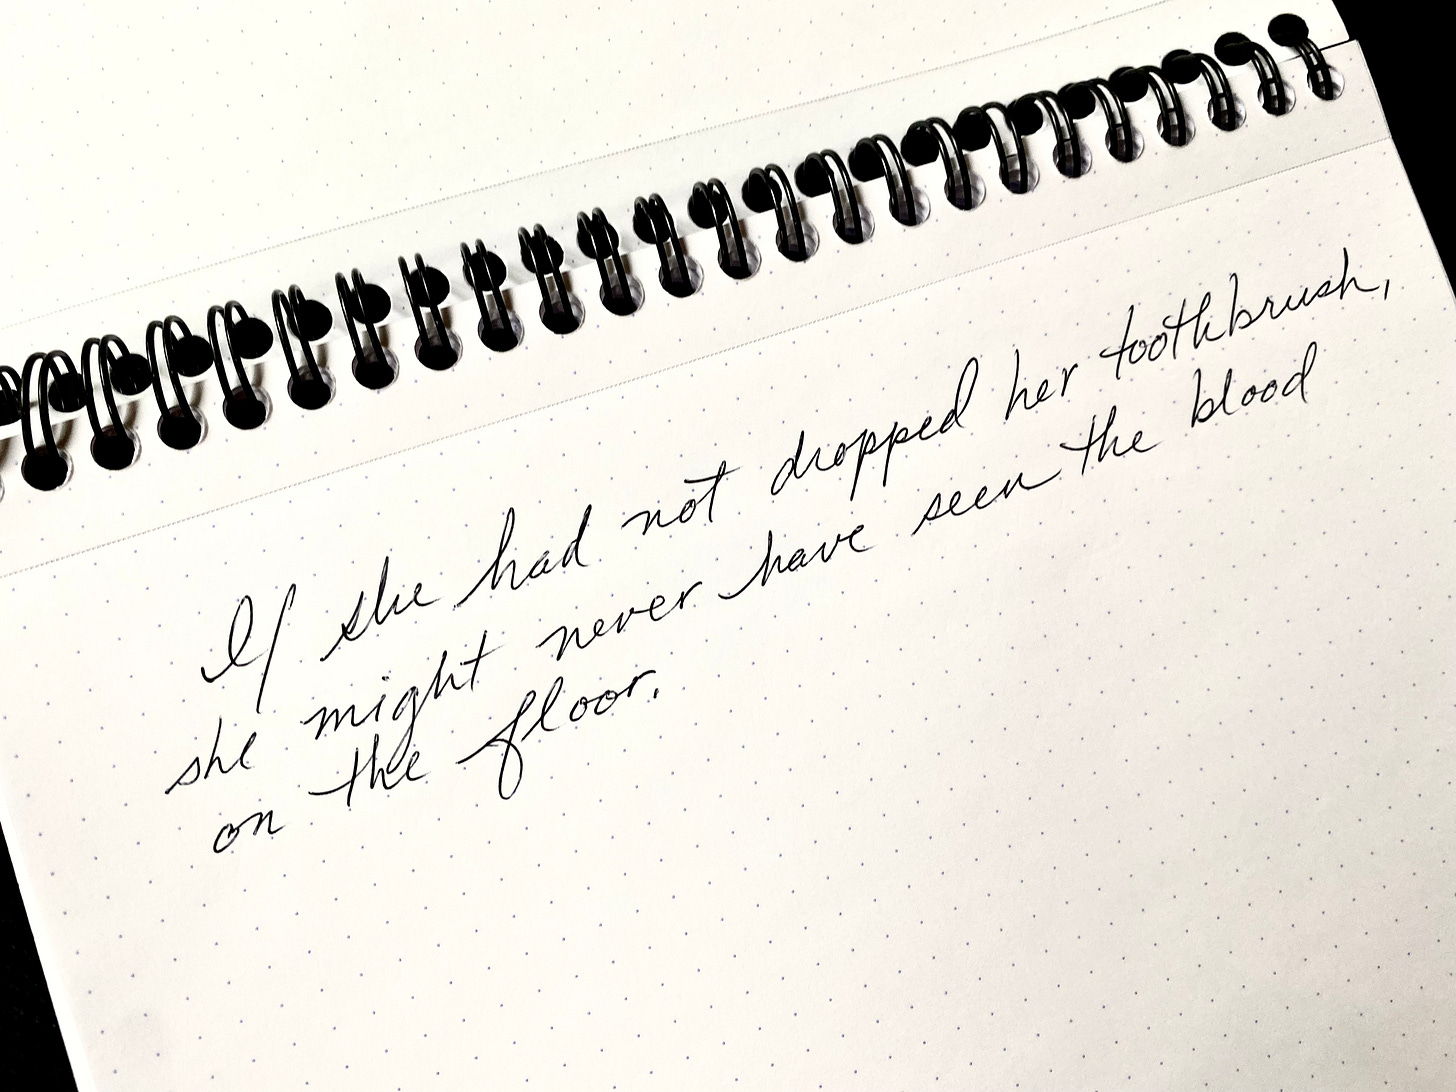 If she had not dropped her toothbrush,
she might never have seen the blood
on the floor.